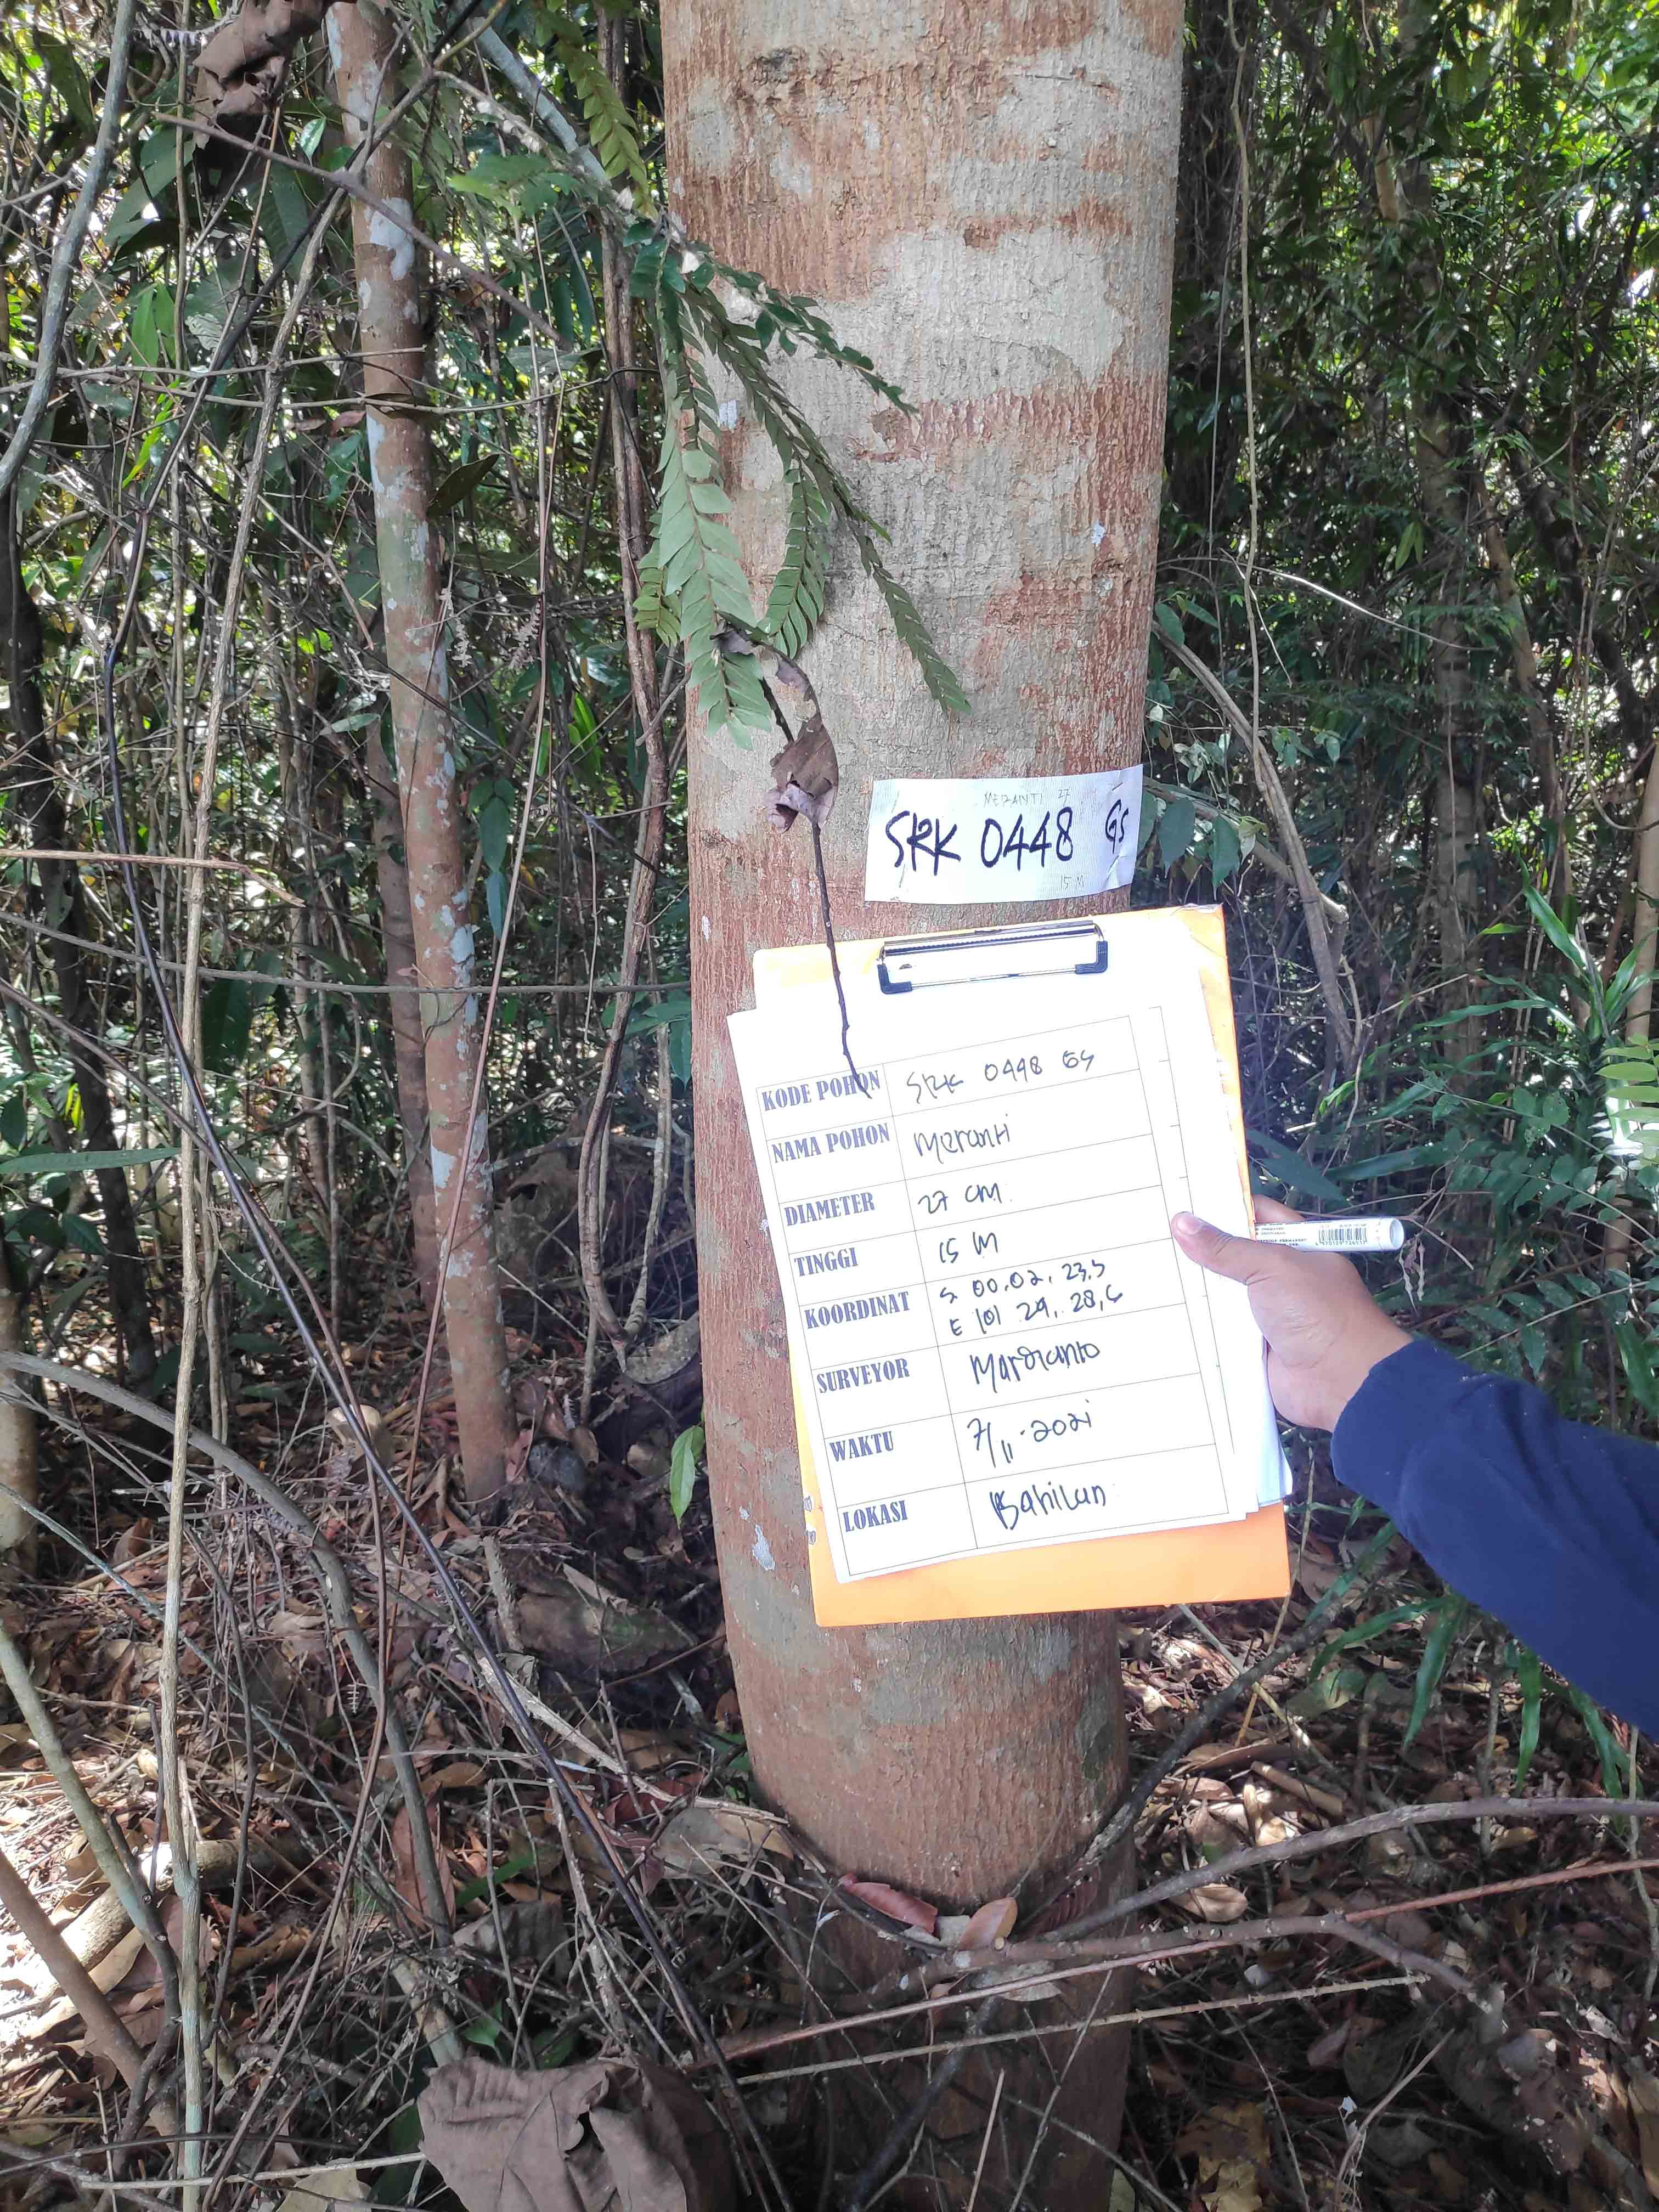 MERANTI 27
SRK 0448 GS
15 M
KODE POHON SRK 0448 GS
NAMA POHON Meranti
DIAMETER 27 CM
TINGGI 15 M
KOORDINAT S 00.02, 23,5
E 101 29, 28,6
SURVEYOR Mardianto
WAKTU 7/11-2021
LOKASI Bahilan